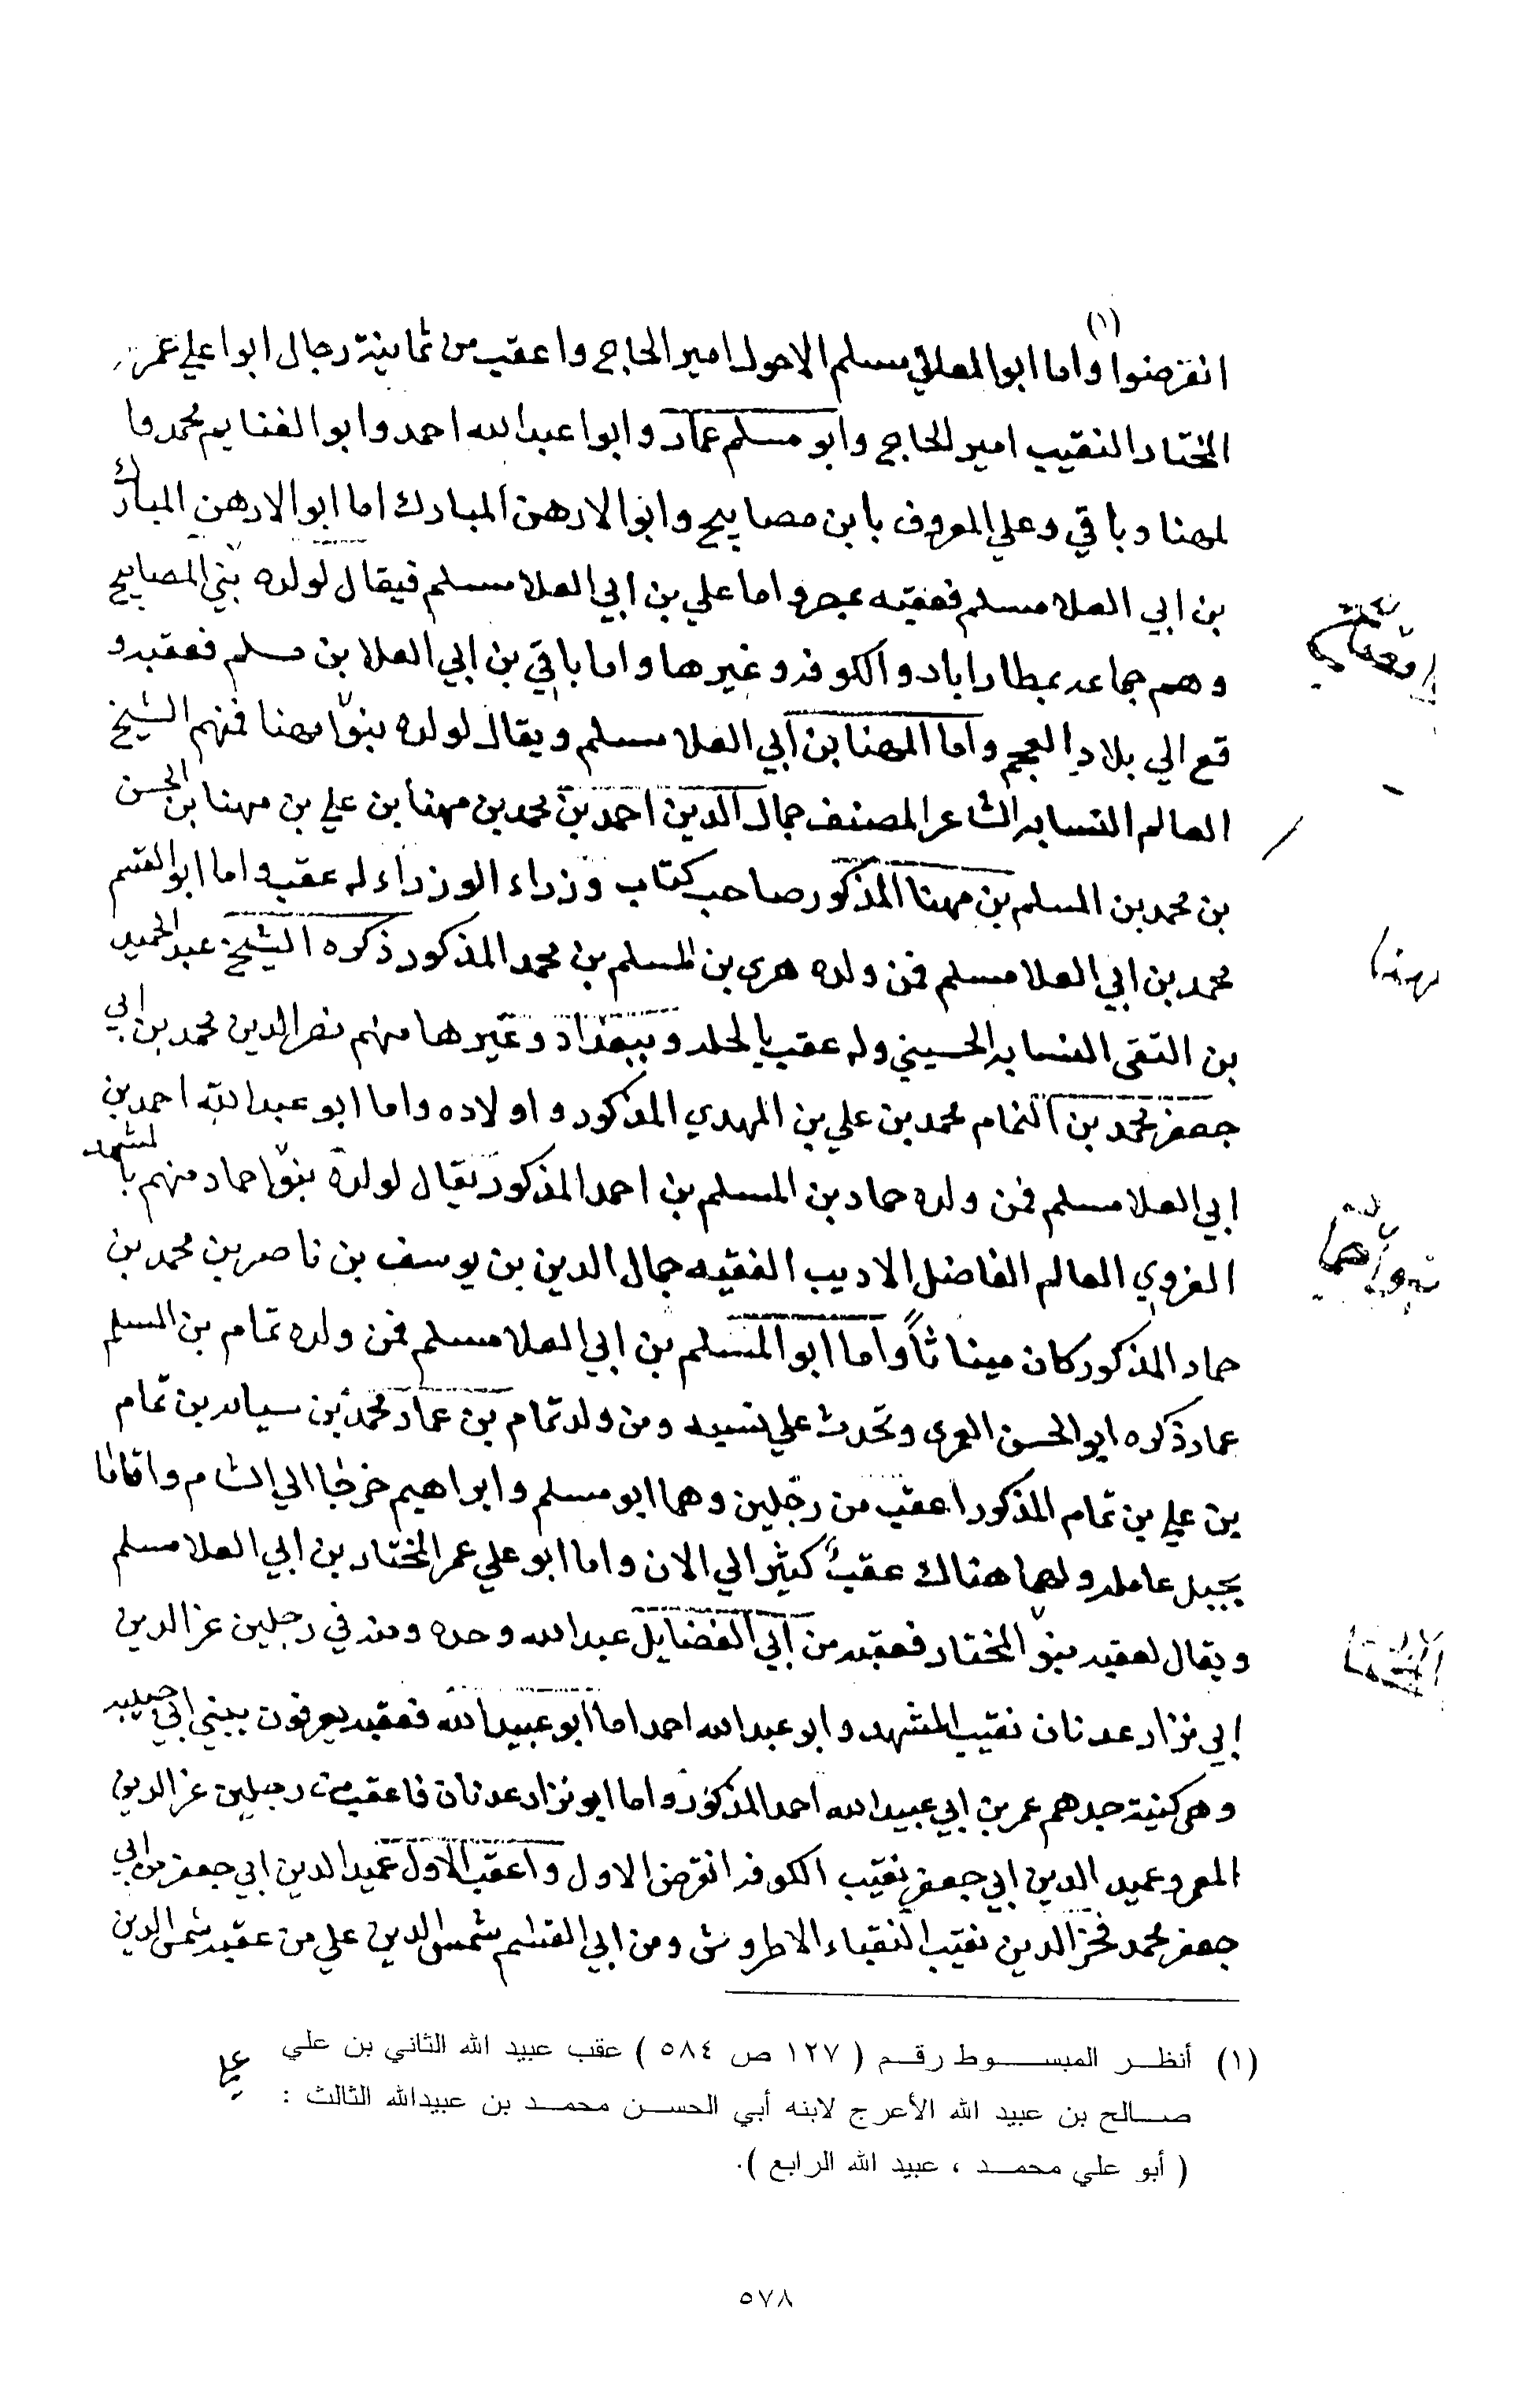 (١)
انقرضوا واما ابوا لمعالي مسلم الاحول امير الحاج واعقب من ثمانية رجال ابوا علي عمر
المختار النقيب امير الحاج وابو مسلم عمار وابوا عبدالله احمد وابوا لغنايم محمد وا
لمهنا وباقي وعلي المعروف بابن مصابيح وابوا لازهر المبارك اما ابوا لازهر المبارك
بن ابي العلا مسلم فعقبه واما علي بن ابي العلا مسلم فيقال لولده بني المصابيح
وهم جماعه بمطاراباد والكوفه وغيرها واما باقي بن ابي العلا بن مسلم فعقبه و
قع الي بلاد العجم واما المهنا بن ابي العلا مسلم ويقال لولده بنوا مهنا فمنهم الشيخ
العالم النسابه الشاعر المصنف جمال الدين احمد بن محمد بن مهنا بن علي بن مهنا بن الحسن
بن محمد بن المسلم بن مهنا المذكور صاحب كتاب وزراء الوزراء له عقب واما ابو القسم
محمد بن ابي العلا مسلم فمن ولده هرى بن المسلم بن محمد المذكور ذكره الشيخ عبد الحميد
بن التقى النسابه الحسيني وله عقب بالحله وببغداد وغيرها منهم نصر الدين محمد بن ابي
جعفر محمد بن التمام محمد بن علي بن المهدي المذكور واولاده واما ابو عبدالله احمد بن
ابي العلا مسلم فمن ولده حماد بن المسلم بن احمد المذكور يقال لولده بنوا حماد منهم بالمشهد
الغروي العالم الفاضل الاديب الفقيه جمال الدين بن يوسف بن ناصر بن محمد بن
حماد المذكور كان ميناثاً واما ابوا لمسلم بن ابي العلا مسلم فمن ولده تمام بن المسلم
عمار ذكره ابو الحسن العمرى وتحدث علي نسبه ومن ولد تمام بن عمار محمد بن بن تمام
بن علي بن تمام المذكور اعقب من رجلين وهما ابو مسلم وابراهيم خرجا الي الشام واقاما
بجبل عامله ولهما هناك عقب كثير الي الان واما ابو علي عمر المختار بن ابي العلا مسلم
ويقال لعقبه بنو المختار فعقبه من ابي الفضايل عبدالله وحده ومنه في رجلين عز الدين
ابي نزار عدنان نقيب المشهد وابو عبدالله احمد اما ابو عبيدالله فعقبه يعرفون ببني ابي حبيبه
وهى كنية جدهم عمر بن ابي عبيدالله احمد المذكور واما ابو نزار عدنان فاعقب من رجلين عز الدين
المعمر وعميد الدين ابي جعفر نقيب الكوفه انقرض الاول واعقب الاول عميد الدين ابي جعفر من ابي
جعفر محمد فخر الدين نقيب النقباء الاطروش ومن ابي القسم شمس الدين علي من عقبه شمس الدين
مهنا
(١) أنظر المبسوط رقم ( ١٢٧ ص ٥٨٤ ) عقب عبيد الله الثاني بن علي
صالح بن عبيد الله الأعرج لابنه أبي الحسن محمد بن عبيدالله الثالث :
( أبو علي محمد ، عبيد الله الرابع ).
علي
٥٧٨